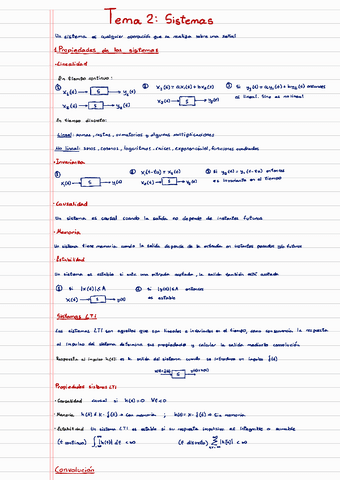 Tema 2: Sistemas
Un sistema es cualquier operación que se realiza sobre una señal
1. Propiedades de los sistemas
·Linealidad
En tiempo continuo:
① x₁(t) → S → y₁(t) ② x₃(t) = ax₁(t) + bx₂(t) ③ Si y₃(t) = ay₁(t) + by₂(t) entonces
x₂(t) → S → y₂(t) x₃(t) → S → y₃(t) es lineal. Sino es no lineal
En tiempo discreto:
Lineal: sumas, restas, sumatorios y algunas multiplicaciones
No lineal: senos, cosenos, logaritmos, raíces, exponenciales, funciones cuadradas
·Invarianza
① x₁(t) → S → y₁(t) ② x₁(t-t₀) = x₂(t) ③ si y₂(t) = y₁(t-t₀) entonces
x₂(t) → S → y₂(t) es invariante en el tiempo
·Causalidad
Un sistema es causal cuando la salida no depende de instantes futuros
·Memoria
Un sistema tiene memoria cuando la salida depende de la entrada en instantes pasados y/o futuros
·Estabilidad
Un sistema es estable si ante una entrada acotada, la salida también está acotada
① Si |x(t)| ≤ A ② si |y(t)| ≤ A entonces
x(t) → S → y(t) es estable
Sistemas LTI
Los sistemas LTI son aquellos que son lineales e invariantes en el tiempo, como consecuencia la respuesta
al impulso del sistema determina sus propiedades y calcular la salida mediante convolución
·Respuesta al impulso h(t): es la salida del sistema cuando se introduce un impulso δ(t)
x(t)=δ(t) → S → y(t)=h(t)
Propiedades sistemas LTI
·Causalidad causal si h(t) = 0 ∀t<0
·Memoria h(t) ≠ K·δ(t) → Con memoria ; h(t) = K·δ(t) → Sin memoria
·Estabilidad Un sistema LTI es estable si su respuesta impulsiva es integrable o sumable
(t continuo) ∫|h(t)| dt < ∞ (t discreto) Σ|h[n]| < ∞
Convolución